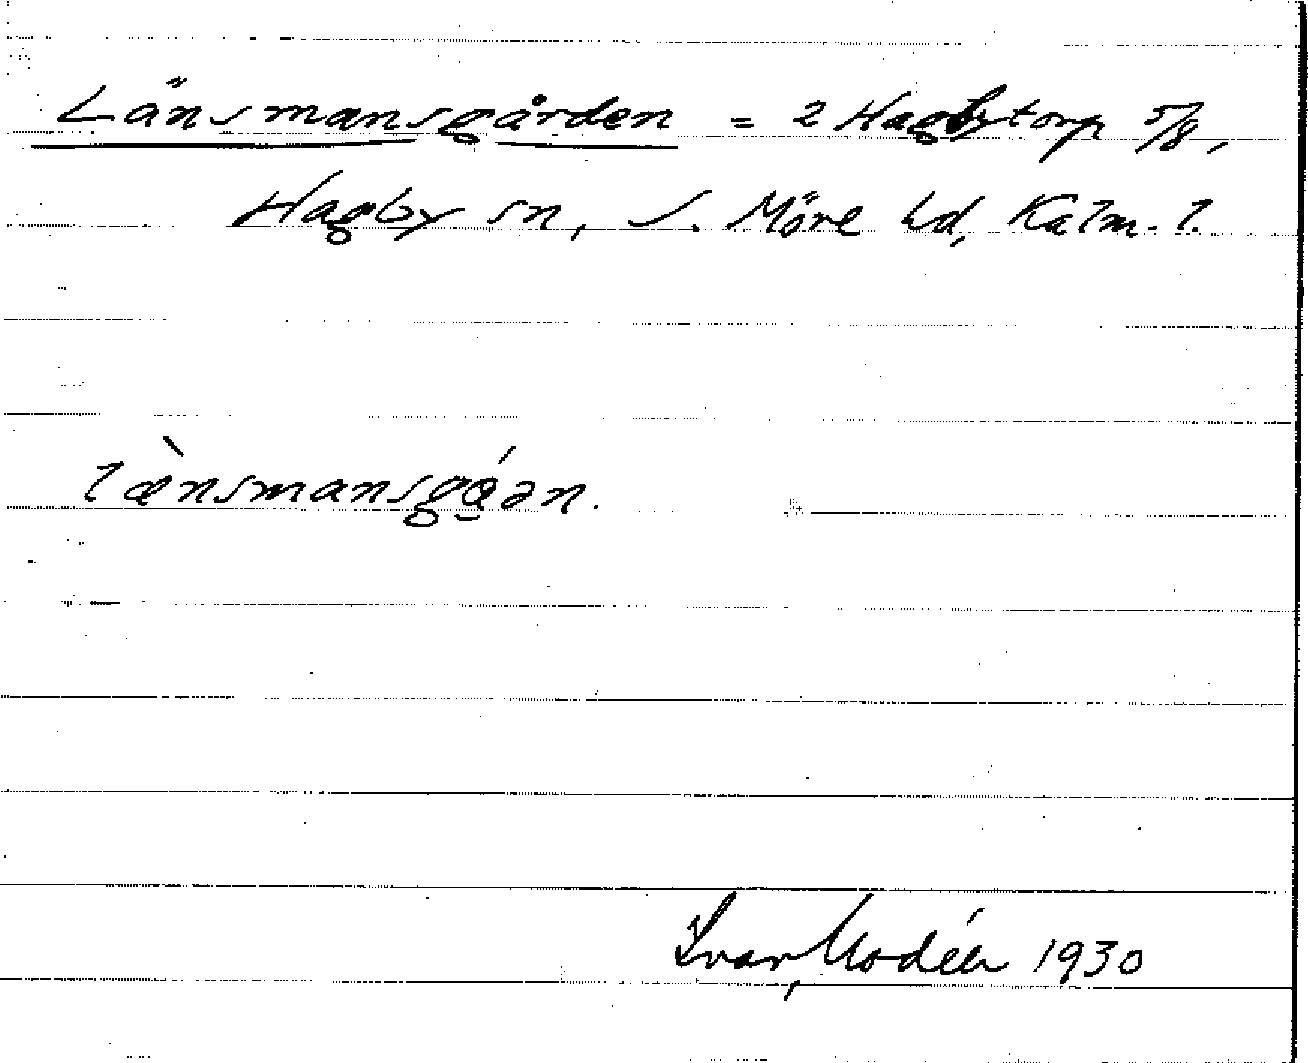 Länsmansgården = 2 Hagbytorp 5/8,
Hagby sn, S. Möre hd, Kalm. l.
lænsmansgǻən.
Ivar Modéer 1930